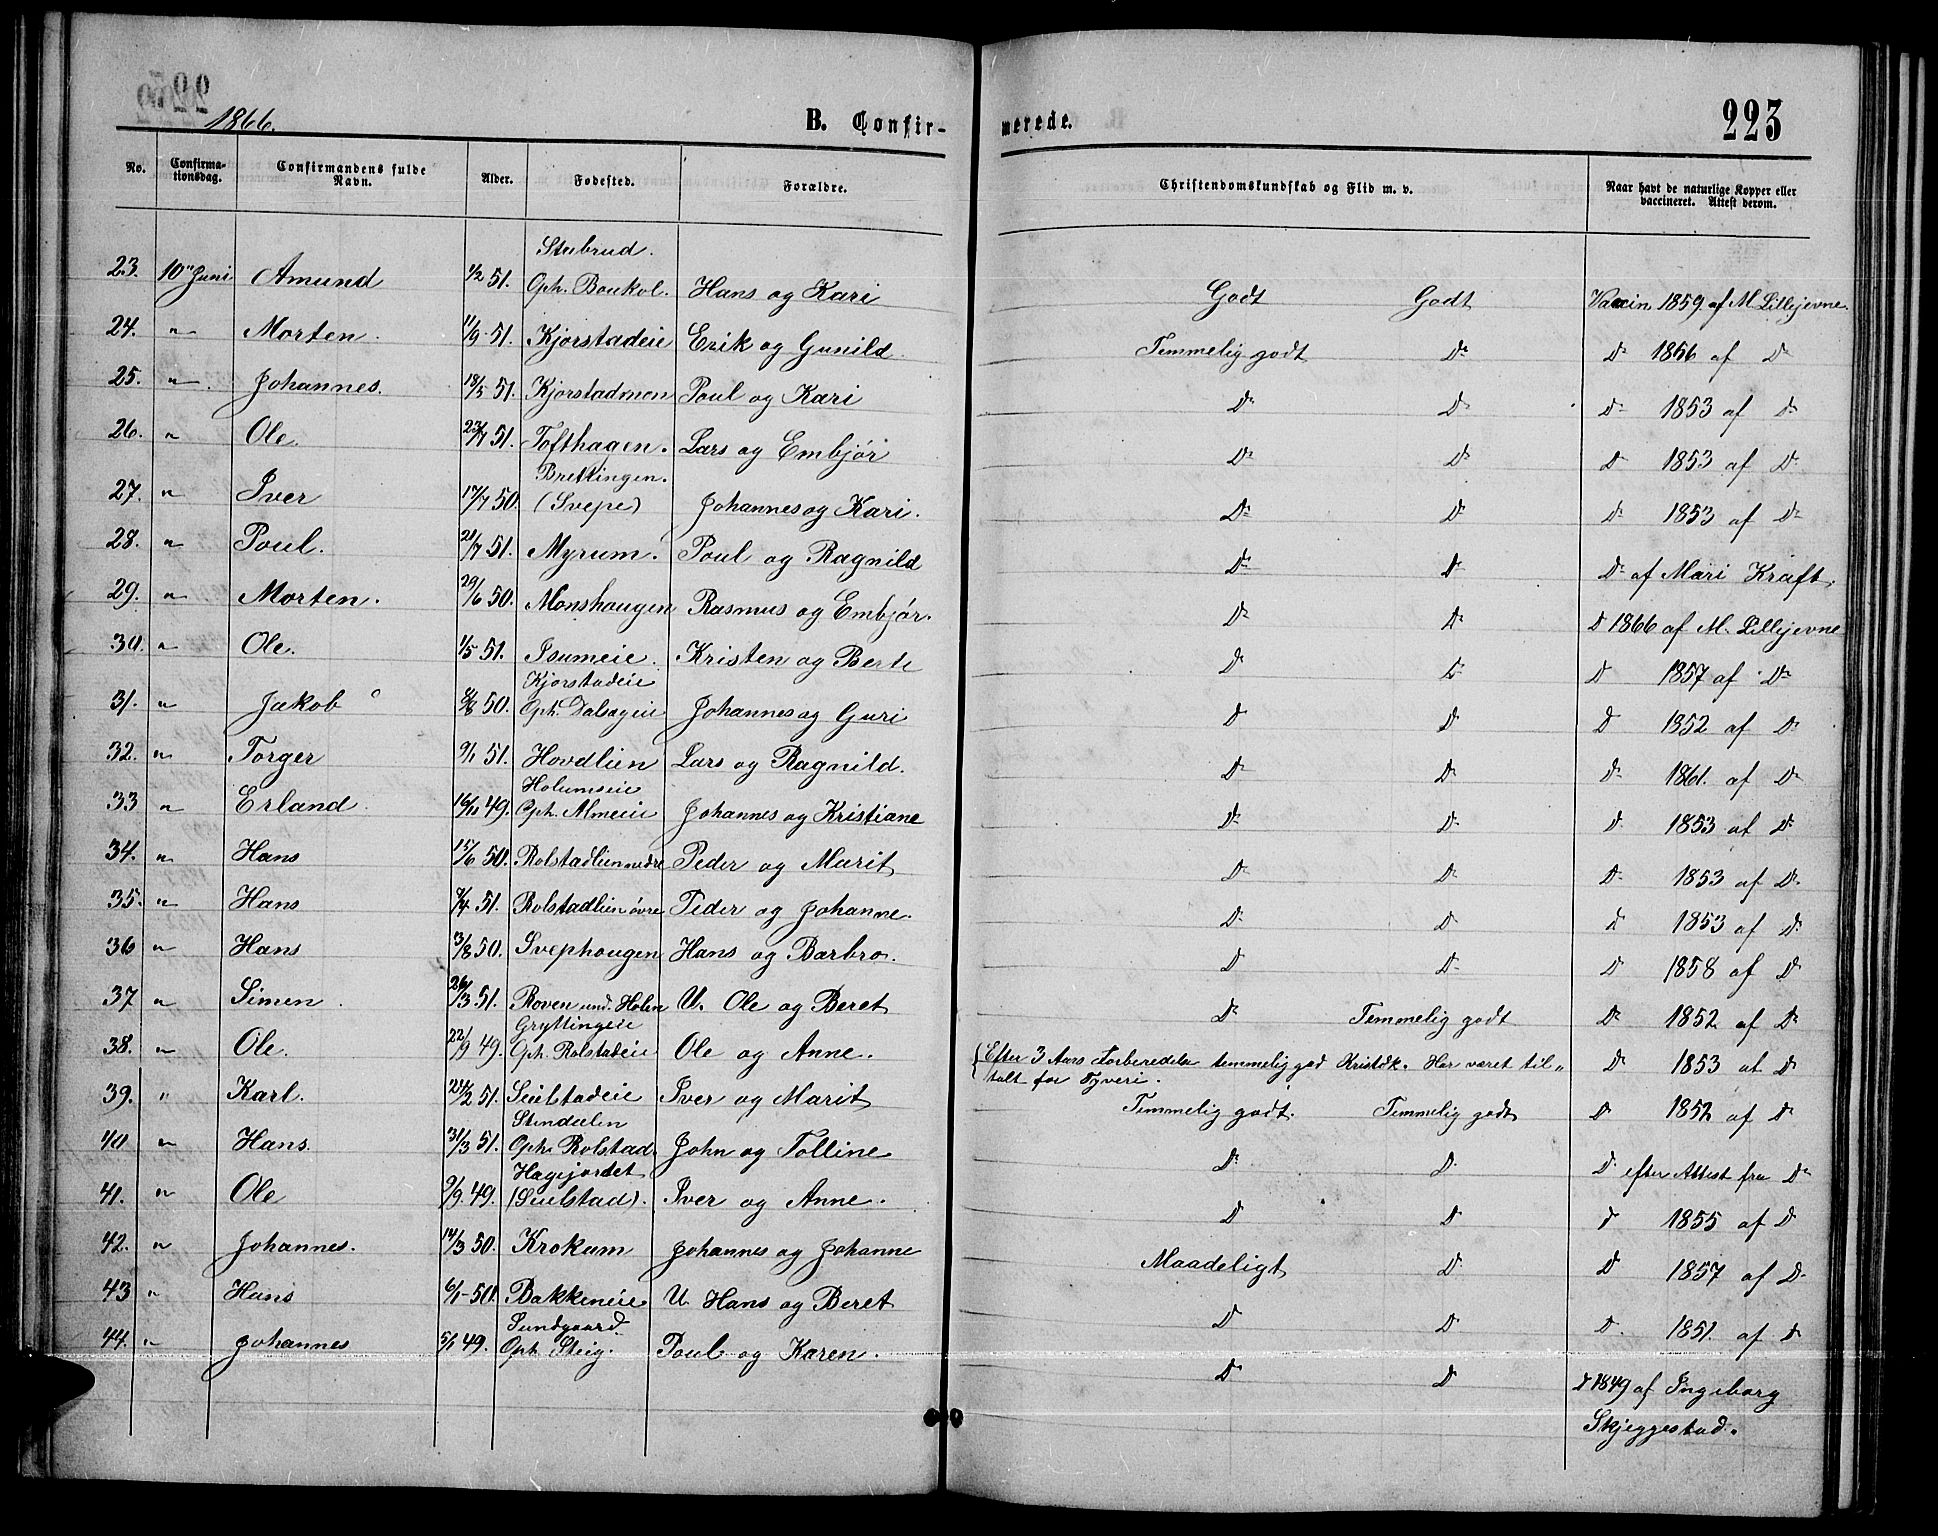 1866.
B. Confirmerede.
223
No. | Confirmationsdag. | Confirmandens fulde Navn. | Alder. | Fødested. | Forældre. | Christendomskundskab og Flid m. v. | Naar havt de naturlige Kopper eller vaccineret. Attest derom.
23. 10" Juni Amund 1/2 51. Stubrud. Oph. Boukol. Hans og Kari Godt Godt Vaccin 1859 af M. Lillejevne.
24. " Morten. 11/9 51. Kjorstadeie Erik og Gunild. Temmelig godt Do Do 1856 af Do
25. " Johannes. 18/5 51. Kjorstadmoen Poul og Kari Do Do Do 1853 af Do
26. " Ole 23/7 51. Tofthagen. Lars og Embjør Do Do Do 1853 af Do
27. " Iver 17/7 50. Brettingen. (Svepe) Johannes og Kari. Do Do Do 1853 af Do
28. " Poul. 21/7 51. Myrum. Poul og Ragnild Do Do Do af Mari Kraft.
29. " Morten. 29/6 50. Monshaugen Rasmus og Embjør. Do Do Do 1866 af M. Lillejevne
30. " Ole. 1/5 51. Isumeie. Kristen og Berte Do Do Do 1857 af Do
31. " Jakob 8/8 50. Kjorstadeie Oph. Dalsegeie Johannes og Guri Do Do Do 1852 af Do
32. " Torger 9/1 51. Hovdlien Lars og Ragnild. Do Do Do 1861. af Do
33 " Erland. 16/11 49. Holumseie Oph. Almeie Johannes og Kristiane Do Do Do 1853 af Do
34. " Hans 15/6 50. Rolstadlien nedre Peder og Marit Do Do Do 1853 af Do
35. " Hans 51. Rolstadlien øvre Peder og Johanne. Do Do Do 1853 af Do
36 " Hans 3/8 50. Svephougen Hans og Barbro. Do Do Do 1858 af Do
37 " Simen. 26/3 51. Roven und. Holen U. Ole og Beret Do Temmelig godt Do 1852 af Do
38. " Ole. 22/9 49. Gryttingeie Oph. Rolstadeie Ole og Anne. Efter 3 Aars Forberedelse temmelig god Kristdk. Har været tiltalt for Tyveri. Do 1853 af Do
39. " Karl. 51. Seielstadeie Iver og Marit Temmelig godt. Temmelig godt Do 1852 af Do
40 " Hans. 31/3 51. Oph. Rolstad John og Tolline Do Do Do efter Attest fra Do
41. " Ole 9/9. 49. Hagejordet (Seielstad). Iver og Anne. Do Do Do 1855 af Do
42. " Johannes. 14/3 50. Krokum Johannes og Johanne Maadeligt Do Do 1857 af Do
43 " Hans 6/1 50. Bakkeneie U Hans og Beret Do Do Do 1851. af Do
44. " Johannes 5/1 49. Sundgaard. Oph. Steig. Poul og Karen. Do Do Do 1849 af Ingeborg
Skjeggestad.